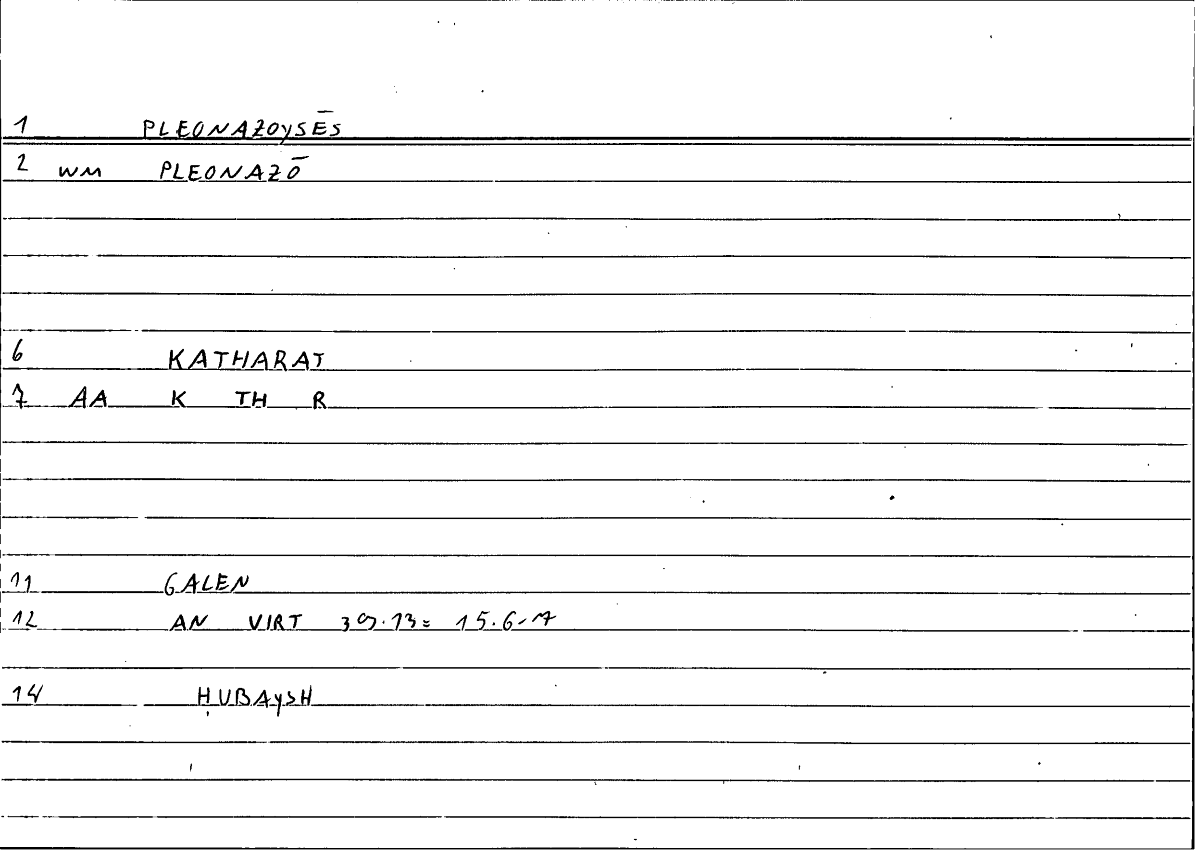 1 PLEONAZOYSĒS
2 WM PLEONAZŌ
6 KATHARAT
7 AA K TH R
11 GALEN
12 AN VIRT 39.13= 15.6-7
14 ḤUBAYSH